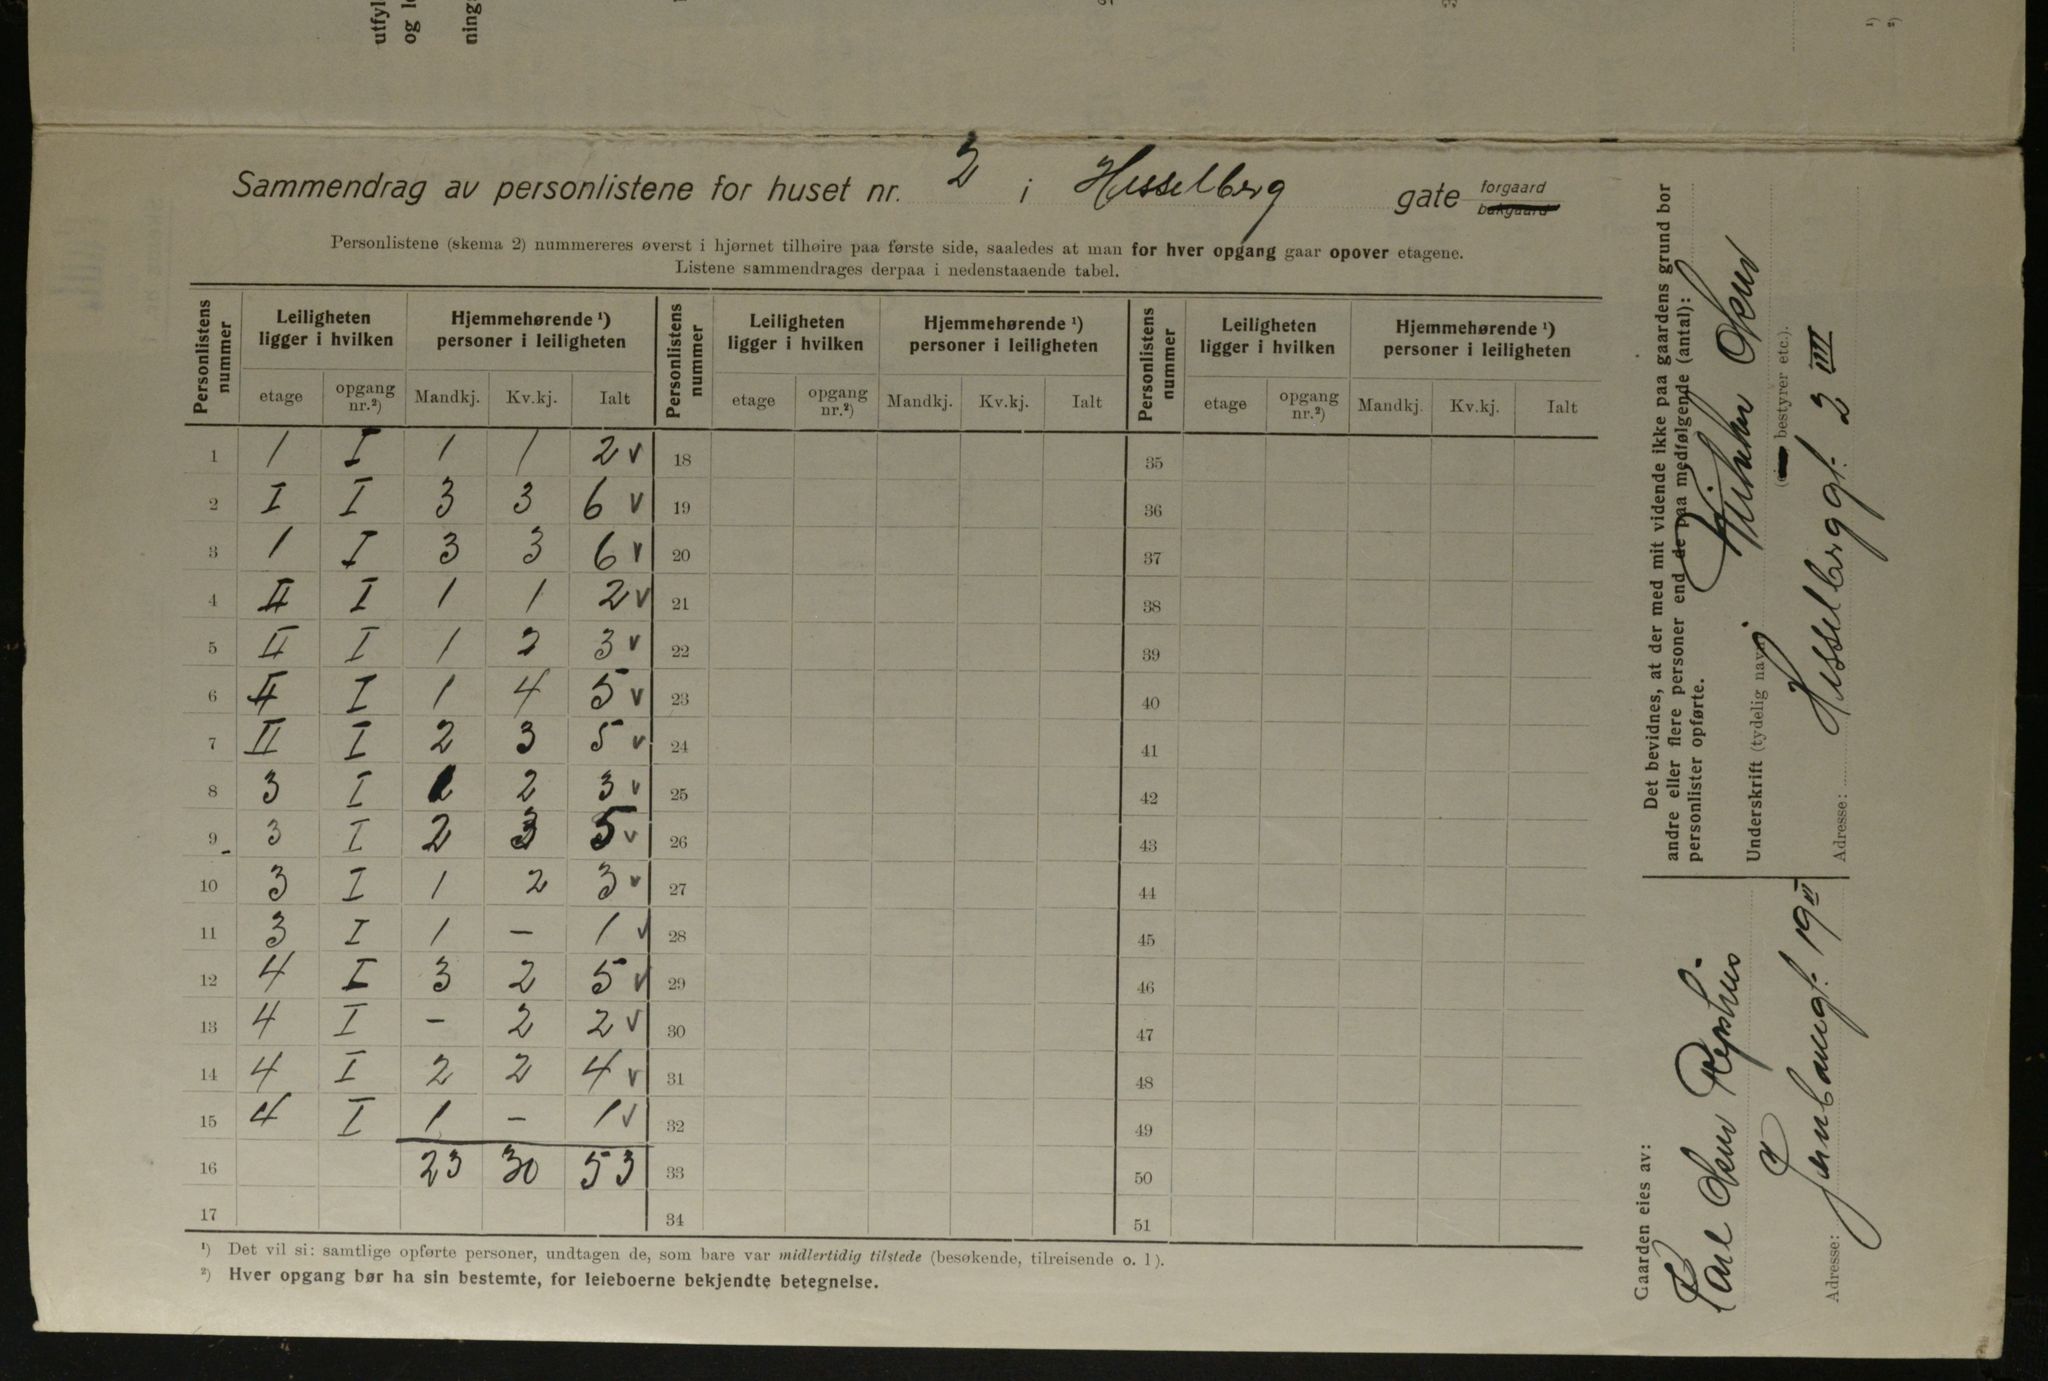 utfyl
og le
nings
Sammendrag av personlistene for huset nr. 2 i Hesselberg gate forgaard bakgaard
Personlistene (skema 2) nummereres øverst i hjørnet tilhøire paa første side, saaledes at man for hver opgang gaar opover etagene.
Listene sammendrages derpaa i nedenstaaende tabel.
Personlistens nummer | Leiligheten ligger i hvilken | Hjemmehørende ¹) personer i leiligheten | Personlistens nummer | Leiligheten ligger i hvilken | Hjemmehørende ¹) personer i leiligheten | Personlistens nummer | Leiligheten ligger i hvilken | Hjemmehørende ¹) personer i leiligheten
etage | opgang nr.²) | Mandkj. | Kv.kj. | Ialt | etage | opgang nr.²) | Mandkj. | Kv.kj. | Ialt | etage | opgang nr.²) | Mandkj. | Kv.kj. | Ialt
1 | 1 | I | 1 | 1 | 2 v | 18 | 35
2 | I | I | 3 | 3 | 6 v | 19 | 36
3 | 1 | I | 3 | 3 | 6 v | 20 | 37
4 | II | I | 1 | 1 | 2 v | 21 | 38
5 | II | I | 1 | 2 | 3 v | 22 | 39
6 | II | I | 1 | 4 | 5 v | 23 | 40
7 | II | I | 2 | 3 | 5 v | 24 | 41
8 | 3 | I | 1 | 2 | 3 v | 25 | 42
9 | 3 | I | 2 | 3 | 5 v | 26 | 43
10 | 3 | I | 1 | 2 | 3 v | 27 | 44
11 | 3 | I | 1 | – | 1 v | 28 | 45
12 | 4 | I | 3 | 2 | 5 v | 29 | 46
13 | 4 | I | – | 2 | 2 v | 30 | 47
14 | 4 | I | 2 | 2 | 4 v | 31 | 48
15 | 4 | I | 1 | – | 1 v | 32 | 49
16 | 23 | 30 | 53 | 33 | 50
17 | 34 | 51
¹) Det vil si: samtlige opførte personer, undtagen de, som bare var midlertidig tilstede (besøkende, tilreisende o. l).
²) Hver opgang bør ha sin bestemte, for leieboerne bekjendte betegnelse.
Det bevidnes, at der med mit vidende ikke paa gaardens grund bor
andre eller flere personer end de paa medfølgende (antal):
personlister opførte.
Underskrift (tydelig navn)
bestyrer etc.).
Adresse: Hesselberggt. 2 IIII
Gaarden eies av:
Adresse: 19